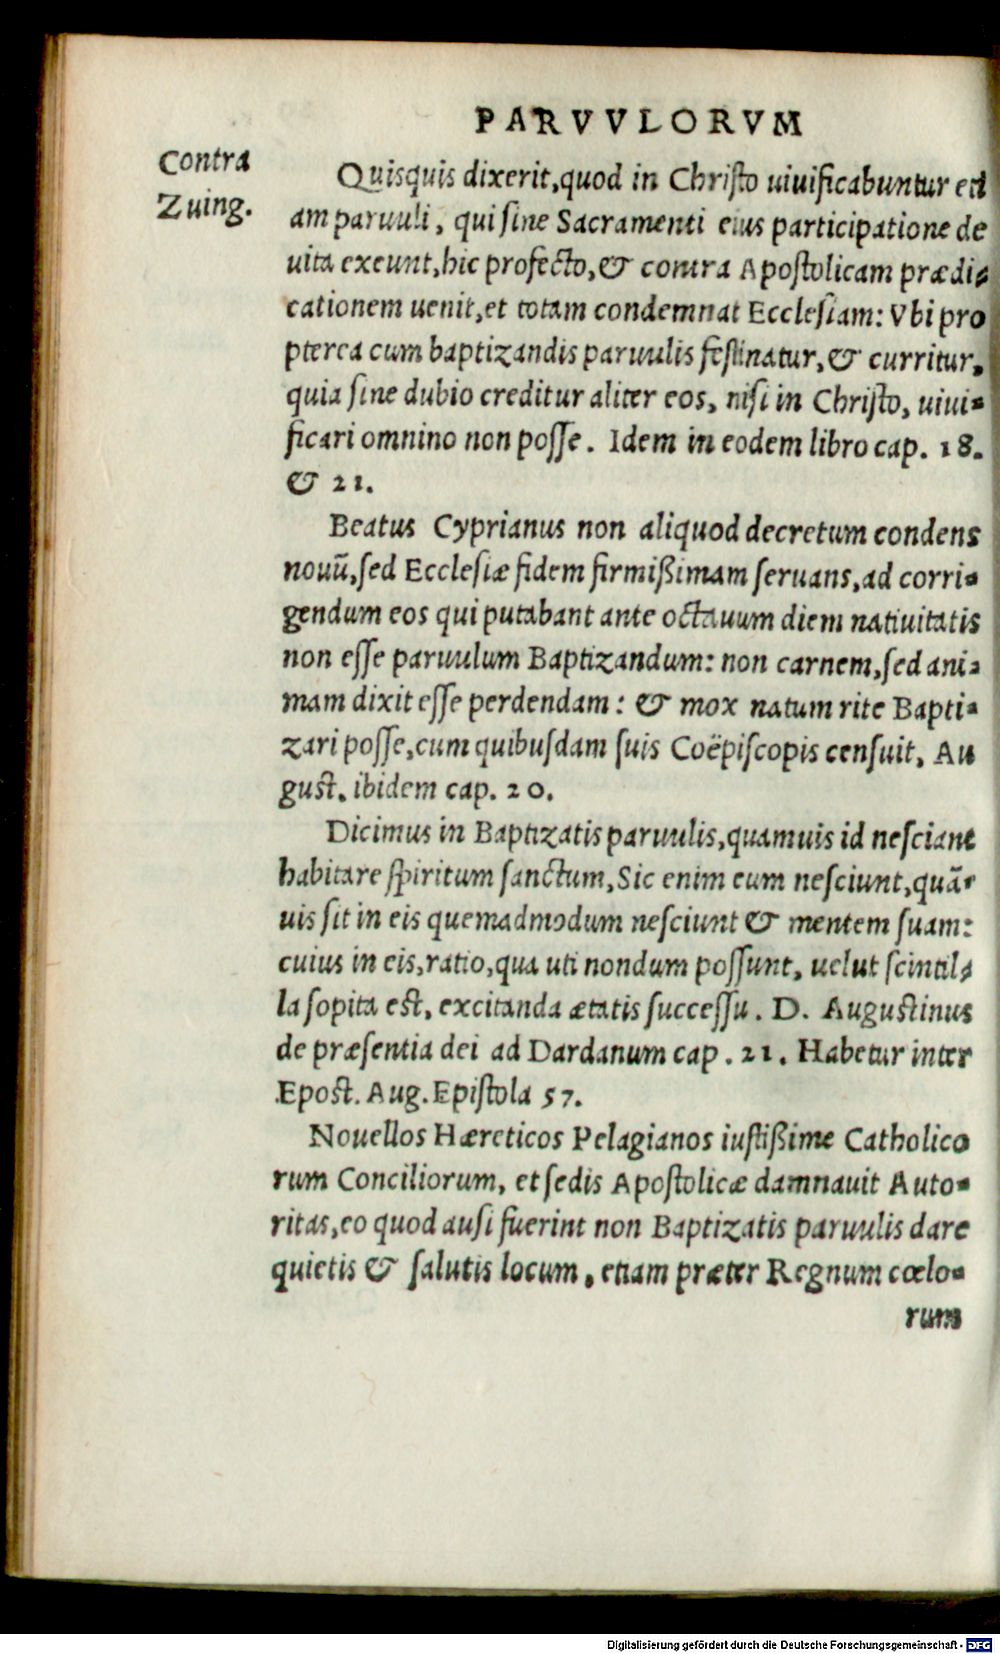 PARVVLORVM
Contra
Zuing.
Quisquis dixerit, quod in Christo uiuificabuntur eti
am paruuli, qui sine Sacramenti eius participatione de
uita exeunt, hic profecto, & contra Apostolicam prædi-
cationem uenit, et totam condemnat Ecclesiam: Vbi pro
pterea cum baptizandis paruulis festinatur, & curritur,
quia sine dubio creditur aliter eos, nisi in Christo, uiui-
ficari omnino non posse. Idem in eodem libro cap. 18.
& 21.
Beatus Cyprianus non aliquod decretum condens
nouũ, sed Ecclesiæ fidem firmißimam seruans, ad corri-
gendum eos qui putabant ante octauum diem natiuitatis
non esse paruulum Baptizandum: non carnem, sed ani-
mam dixit esse perdendam: & mox natum rite Bapti-
zari posse, cum quibusdam suis Coëpiscopis censuit. Au
gust. ibidem cap. 20.
Dicimus in Baptizatis paruulis, quamuis id nesciant
habitare spiritum sanctum, Sic enim eum nesciunt, quã-
uis sit in eis quemadmodum nesciunt & mentem suam:
cuius in eis, ratio, qua uti nondum possunt, uelut scintil-
la sopita est, excitanda ætatis successu. D. Augustinus
de præsentia dei ad Dardanum cap. 21. Habetur inter
Epost. Aug. Epistola 57.
Nouellos Hæreticos Pelagianos iustißime Catholico
rum Conciliorum, et sedis Apostolicæ damnauit Auto-
ritas, eo quod ausi fuerint non Baptizatis paruulis dare
quietis & salutis locum, etiam præter Regnum cœlo-
rum
Digitalisierung gefördert durch die Deutsche Forschungsgemeinschaft - DFG